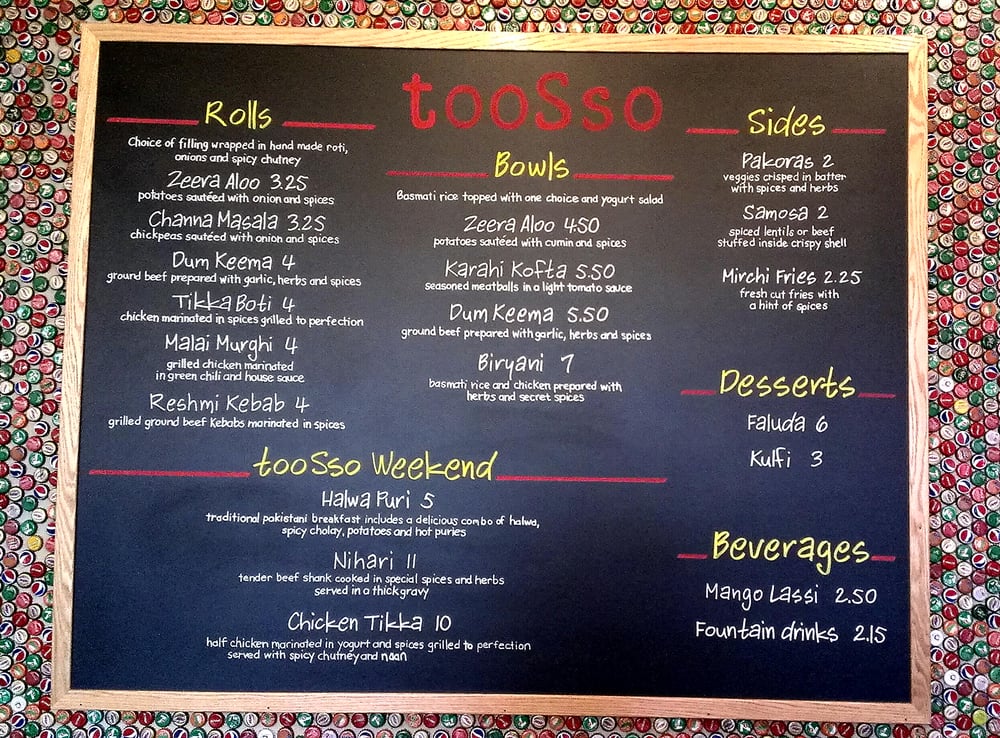 tooSso
Rolls
Choice of filling wrapped in hand made roti,
onions and spicy chutney
Zeera Aloo 3.25
potatoes sautéed with onion and spices
Channa Masala 3.25
chickpeas sautéed with onion and spices
Dum Keema 4
ground beef prepared with garlic, herbs and spices
Tikka Boti 4
chicken marinated in spices grilled to perfection
Malai Murghi 4
grilled chicken marinated
in green chili and house sauce
Reshmi Kebab 4
grilled ground beef Kebabs marinated in spices
Bowls
Basmati rice topped with one choice and yogurt salad
Zeera Aloo 4.50
potatoes sautéed with cumin and spices
Karahi Kofta 5.50
seasoned meatballs in a light tomato sauce
Dum Keema 5.50
ground beef prepared with garlic, herbs and spices
Biryani 7
basmati rice and chicken prepared with
herbs and secret spices
Sides
Pakoras 2
veggies crisped in batter
with spices and herbs
Samosa 2
spiced lentils or beef
stuffed inside crispy shell
Mirchi Fries 2.25
fresh cut fries with
a hint of spices
Desserts
Faluda 6
Kulfi 3
tooSso Weekend
Halwa Puri 5
traditional pakistani breakfast includes a delicious combo of halwa,
spicy cholay, potatoes and hot puries
Nihari 11
tender beef shank cooked in special spices and herbs
served in a thick gravy
Chicken Tikka 10
half chicken marinated in yogurt and spices grilled to perfection
served with spicy chutney and naan
Beverages
Mango Lassi 2.50
Fountain drinks 2.15